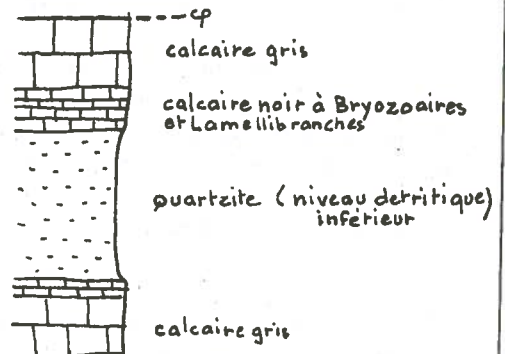 φ
calcaire gris
calcaire noir à Bryozoaires
et Lamellibranches
quartzite (niveau detritique)
inférieur
calcaire gris